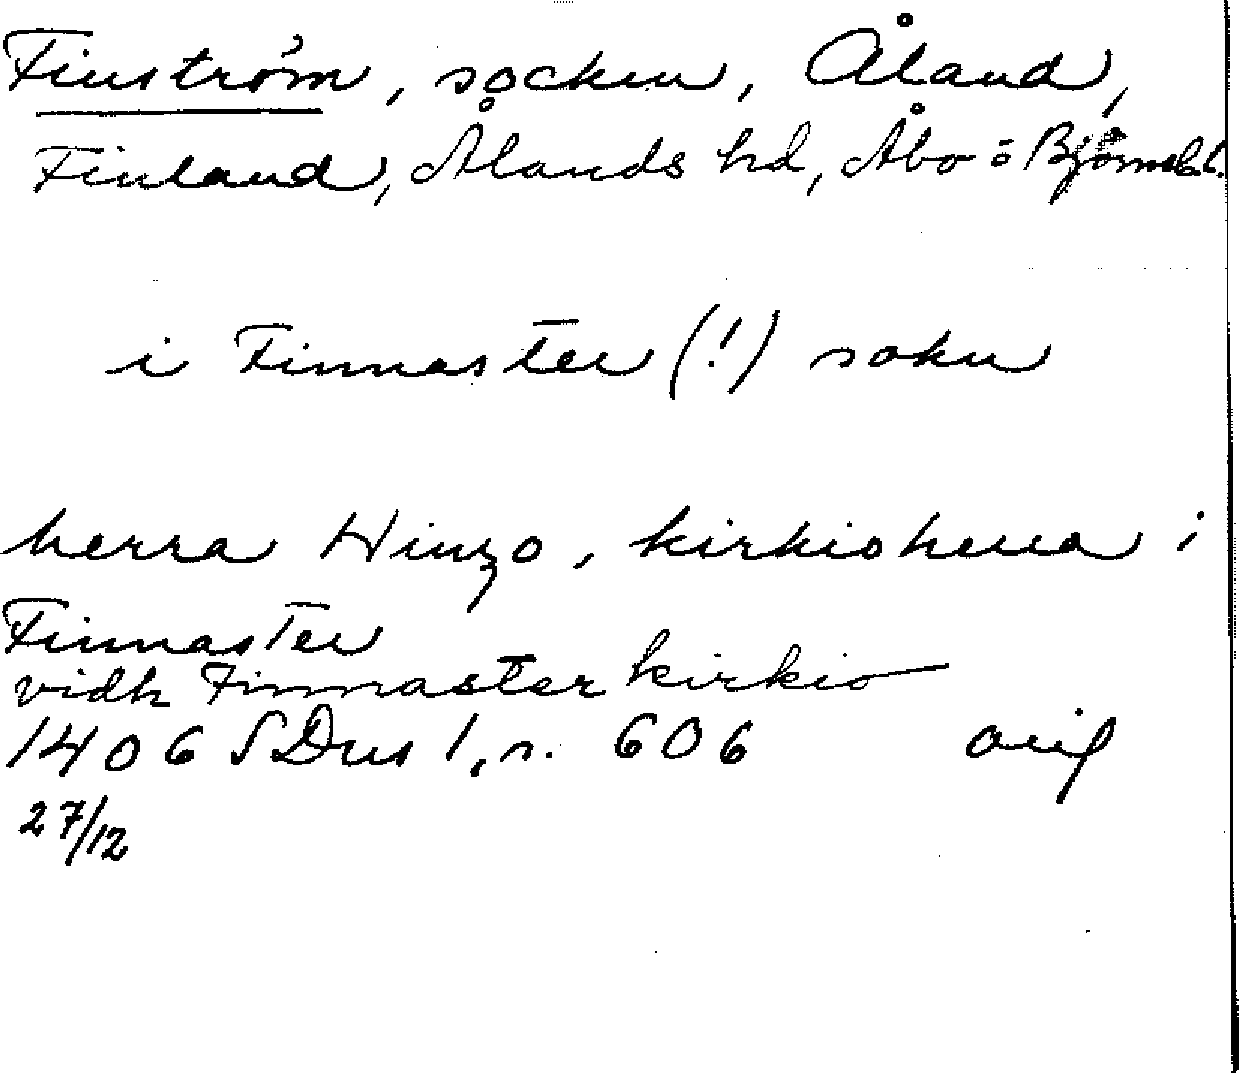 Finström, socken, Åland,
Finland, Ålands hd, Åbo o Björneb.l.
i Finnaster (!) sokn
herra Hinzo, kirkioherra i
Finnaster
vidh Finnaster kirkio
1406 SDns 1, s. 606 orig
27/12